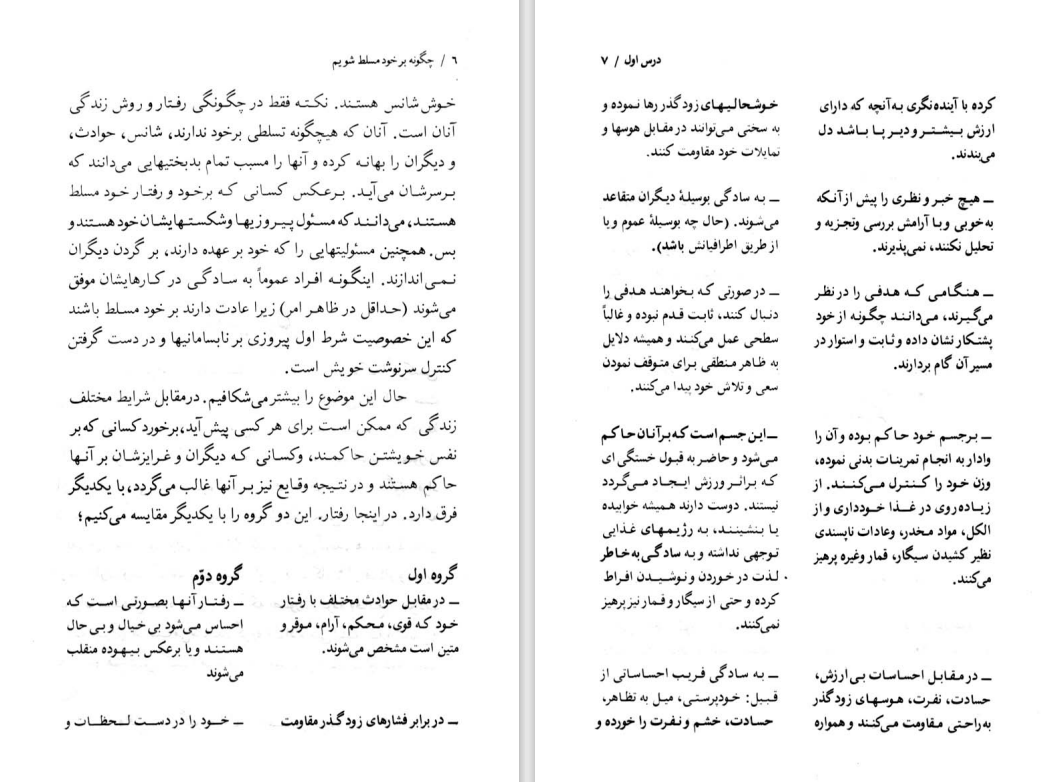 ۶ / چگونه بر خود مسلط شویم
خوش‌شانس هستند. نکته فقط در چگونگی رفتار و روش زندگی
آنان است. آنان که هیچگونه تسلطی برخود ندارند، شانس، حوادث،
و دیگران را بهانه کرده و آنها را مسبب تمام بدبختیهایی می‌دانند که
برسرشان می‌آید. برعکس کسانی که برخود و رفتار خود مسلط
هستند، می‌دانند که مسئول پیروزیها و شکستهایشان خود هستند و
بس. همچنین مسئولیتهایی را که خود بر عهده دارند، بر گردن دیگران
نمی‌اندازند. اینگونه افراد عموماً به سادگی در کارهایشان موفق
می‌شوند (حداقل در ظاهر امر) زیرا عادت دارند بر خود مسلط باشند
که این خصوصیت شرط اول پیروزی بر نابسامانیها و در دست گرفتن
کنترل سرنوشت خویش است.
حال این موضوع را بیشتر می‌شکافیم. درمقابل شرایط مختلف
زندگی که ممکن است برای هر کسی پیش آید، برخورد کسانی که بر
نفس خویشتن حاکمند، وکسانی که دیگران و غرایزشان بر آنها
حاکم هستند و در نتیجه وقایع نیز بر آنها غالب می‌گردد، با یکدیگر
فرق دارد. در اینجا رفتار. این دو گروه را با یکدیگر مقایسه می‌کنیم؛
گروه اول
ـ در مقابل حوادث مختلف با رفتار
خود که قوی، محکم، آرام، موقر و
متین است مشخص می‌شوند.
ـ در برابر فشارهای زودگذر مقاومت
گروه دوّم
ـ رفتار آنها بصورتی است که
احساس می‌شود بی‌خیال و بی‌حال
هستند ویا برعکس بیهوده منقلب
می‌شوند
ـ خود را در دست لحظات و
درس اول / ۷
کرده با آینده‌نگری به آنچه که دارای
ارزش بیشتر و دیر پا باشد دل
می‌بندند.
ـ هیچ خبر و نظری را پیش از آنکه
به‌خوبی وبا آرامش بررسی وتجزیه و
تحلیل نکنند، نمی‌پذیرند.
ـ هنگامی که هدفی را در نظر
می‌گیرند، می‌دانند چگونه از خود
پشتکار نشان داده و ثابت و استوار در
مسیر آن گام بردارند.
ـ برجسم خود حاکم بوده وآن را
وادار به انجام تمرینات بدنی نموده،
وزن خود را کنترل می‌کنند. از
زیاده‌روی در غذا خودداری و از
الکل، مواد مخدر، وعادات ناپسندی
نظیر کشیدن سیگار، قمار وغیره پرهیز
می‌کنند.
ـ در مقابل احساسات بی‌ارزش،
حسادت، نفرت، هوسهای زودگذر
به‌راحتی مقاومت می‌کنند و همواره
خوشحالیهای زودگذر رها نموده و
به سختی می‌توانند در مقابل هوسها و
تمایلات خود مقاومت کنند.
ـ به سادگی بوسیلهٔ دیگران متقاعد
می‌شوند. (حال چه بوسیلهٔ عموم و یا
از طریق اطرافیانش باشد).
ـ در صورتی که بخواهند هدفی را
دنبال کنند، ثابت قدم نبوده و غالباً
سطحی عمل می‌کنند و همیشه دلایل
به ظاهر منطقی برای متوقف نمودن
سعی و تلاش خود پیدا می‌کنند.
ـ این جسم است که برآنان حاکم
می‌شود و حاضر به قبول خستگی ای
که براثر ورزش ایجاد می‌گردد
نیستند. دوست دارند همیشه خوابیده
یا بنشینند، به رژیمهای غذایی
توجهی نداشته و به سادگی به خاطر
لذت در خوردن و نوشیدن افراط
کرده و حتی از سیگار و قمار نیز پرهیز
نمی‌کنند.
ـ به سادگی فریب احساساتی از
قبیل: خودپرستی، میل به تظاهر،
حسادت، خشم و نفرت را خورده و